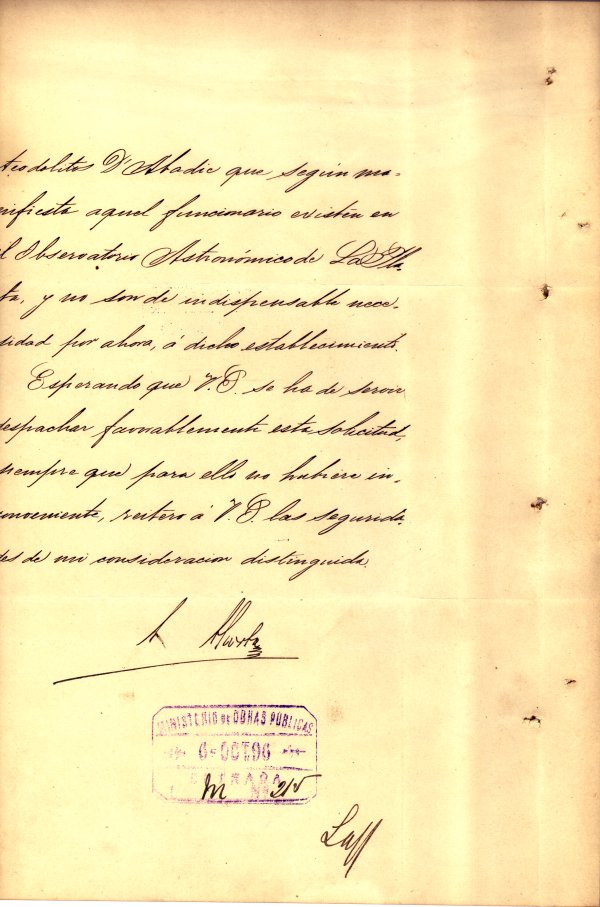 teodolitos D'Abadie que según ma-
nifiesta aquel funcionario existen en
el Observatorio Astronómico de La Pla-
ta, y no son de indispensable nece-
sidad por ahora, á dicho establecimiento.
Esperando que V.E. se ha de servir
despachar favorablemente esta solicitud,
siempre que para ello no hubiere in-
conveniente, reitero á V.E. las segurida-
des de mi consideracion distinguida.
MINISTERIO DE OBRAS PÚBLICAS
6-OCT.96
ENTRADA
L M Nº 215